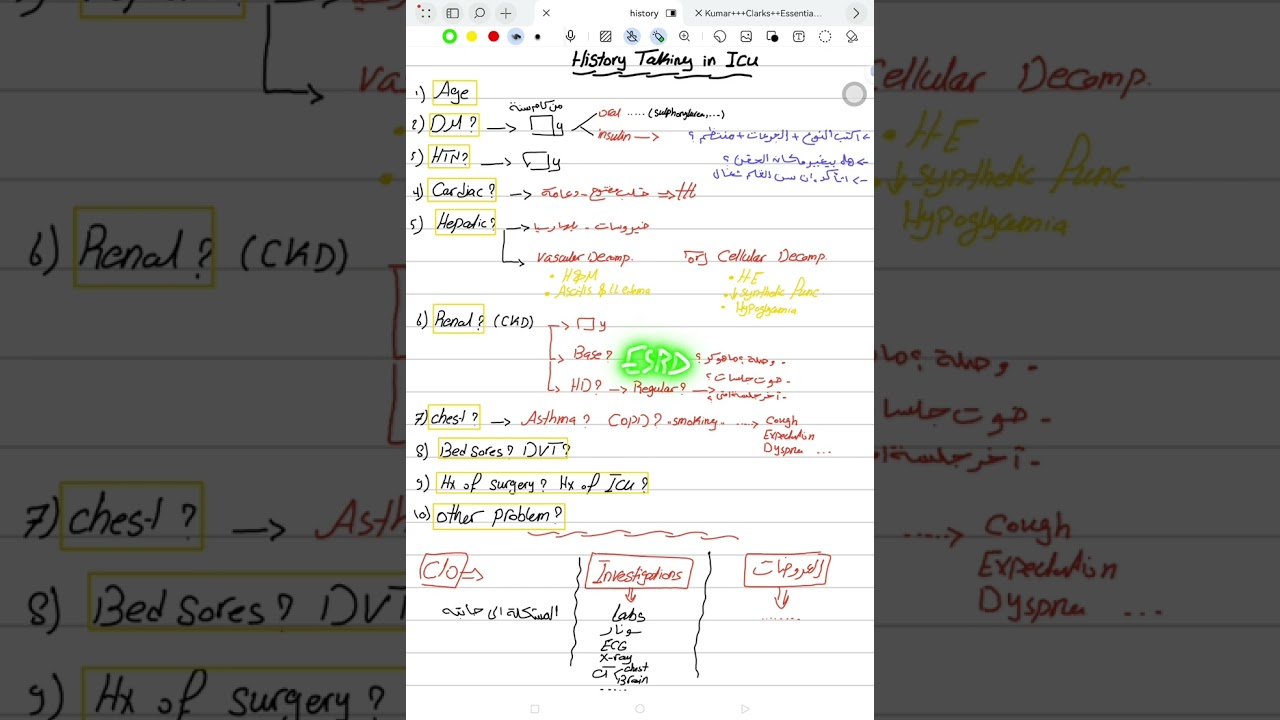 history
Kumar+++Clarks++Essentia...
History Taking in ICU
1) Age
من كام سنة
2) DM? → y
oral ..... (sulphonylurea,...)
insulin →
> اكتب النوع + الجرعات + منتظم ؟
> هل بيغير مكان الحقن ؟
3) HTN? → y
4) Cardiac? → قلب مفتوح - دعامة
5) Hepatic? → فيروسات - بلهارسيا
Vascular Decomp. [or] Cellular Decomp.
• H&M
• Ascitis & LL edema
• HE
• ↓ synthetic func
• Hypoglycemia
6) Renal? (CKD) → y
→ Base? ESRD
→ HD? → Regular? →
- وصلة ؟ ماهوكر ؟
- فوت جلسات ؟
- آخر جلسة امتى ؟
7) chest? → Asthma? COPD? - smoking - ....> Cough
Expectution
Dyspnea ...
8) Bed sores? DVT?
9) Hx of surgery? Hx of ICU?
10) other problem?
C/O →
المشكلة الى جايبه
Investigations
Labs
سونار
ECG
X-ray
CT chest
Brain
.....
الفروضات
.......